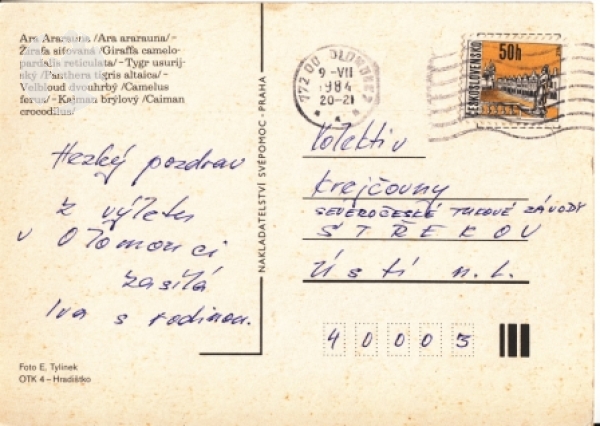 Ara Ararauna /Ara ararauna/ –
Žirafa síťovaná /Giraffa camelo-
pardalis reticulata/ – Tygr usurij-
ský /Panthera tigris altaica/ –
Velbloud dvouhrbý /Camelus
ferus/ – Kajman brýlový /Caiman
crocodilus/
Hezký pozdrav
z výletu
v Olomouci
zasílá
Iva s rodinou.
Foto E. Tylínek
OTK 4 – Hradištko
NAKLADATELSTVÍ SVÉPOMOC - PRAHA
772 00 OLOMOUC 2
9 -VII
1984
20-21
ČESKOSLOVENSKO
50h
Kolektiv
Krejčovny
SEVEROČESKÉ TUKOVÉ ZÁVODY
STŘEKOV
Ústí n. L.
40003